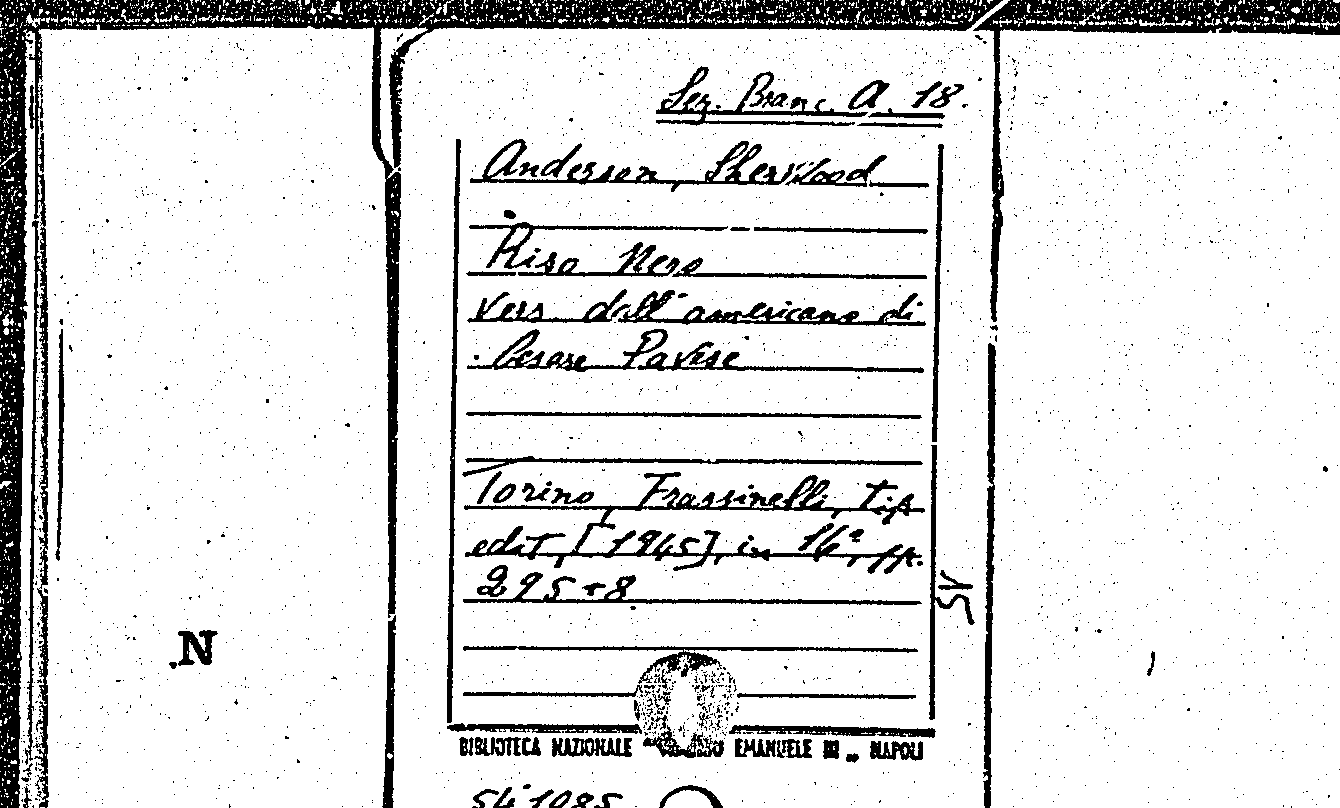 Sez. Branc. A. 18.
Anderson, Sherwood
Riso Nero
Vers. dall'americano di
Cesare Pavese
Torino, Frassinelli, tip.
edit, [1945], in 16º, pp.
295+8
SV
.N
BIBLIOTECA NAZIONALE " EMANUELE III „ NAPOLI